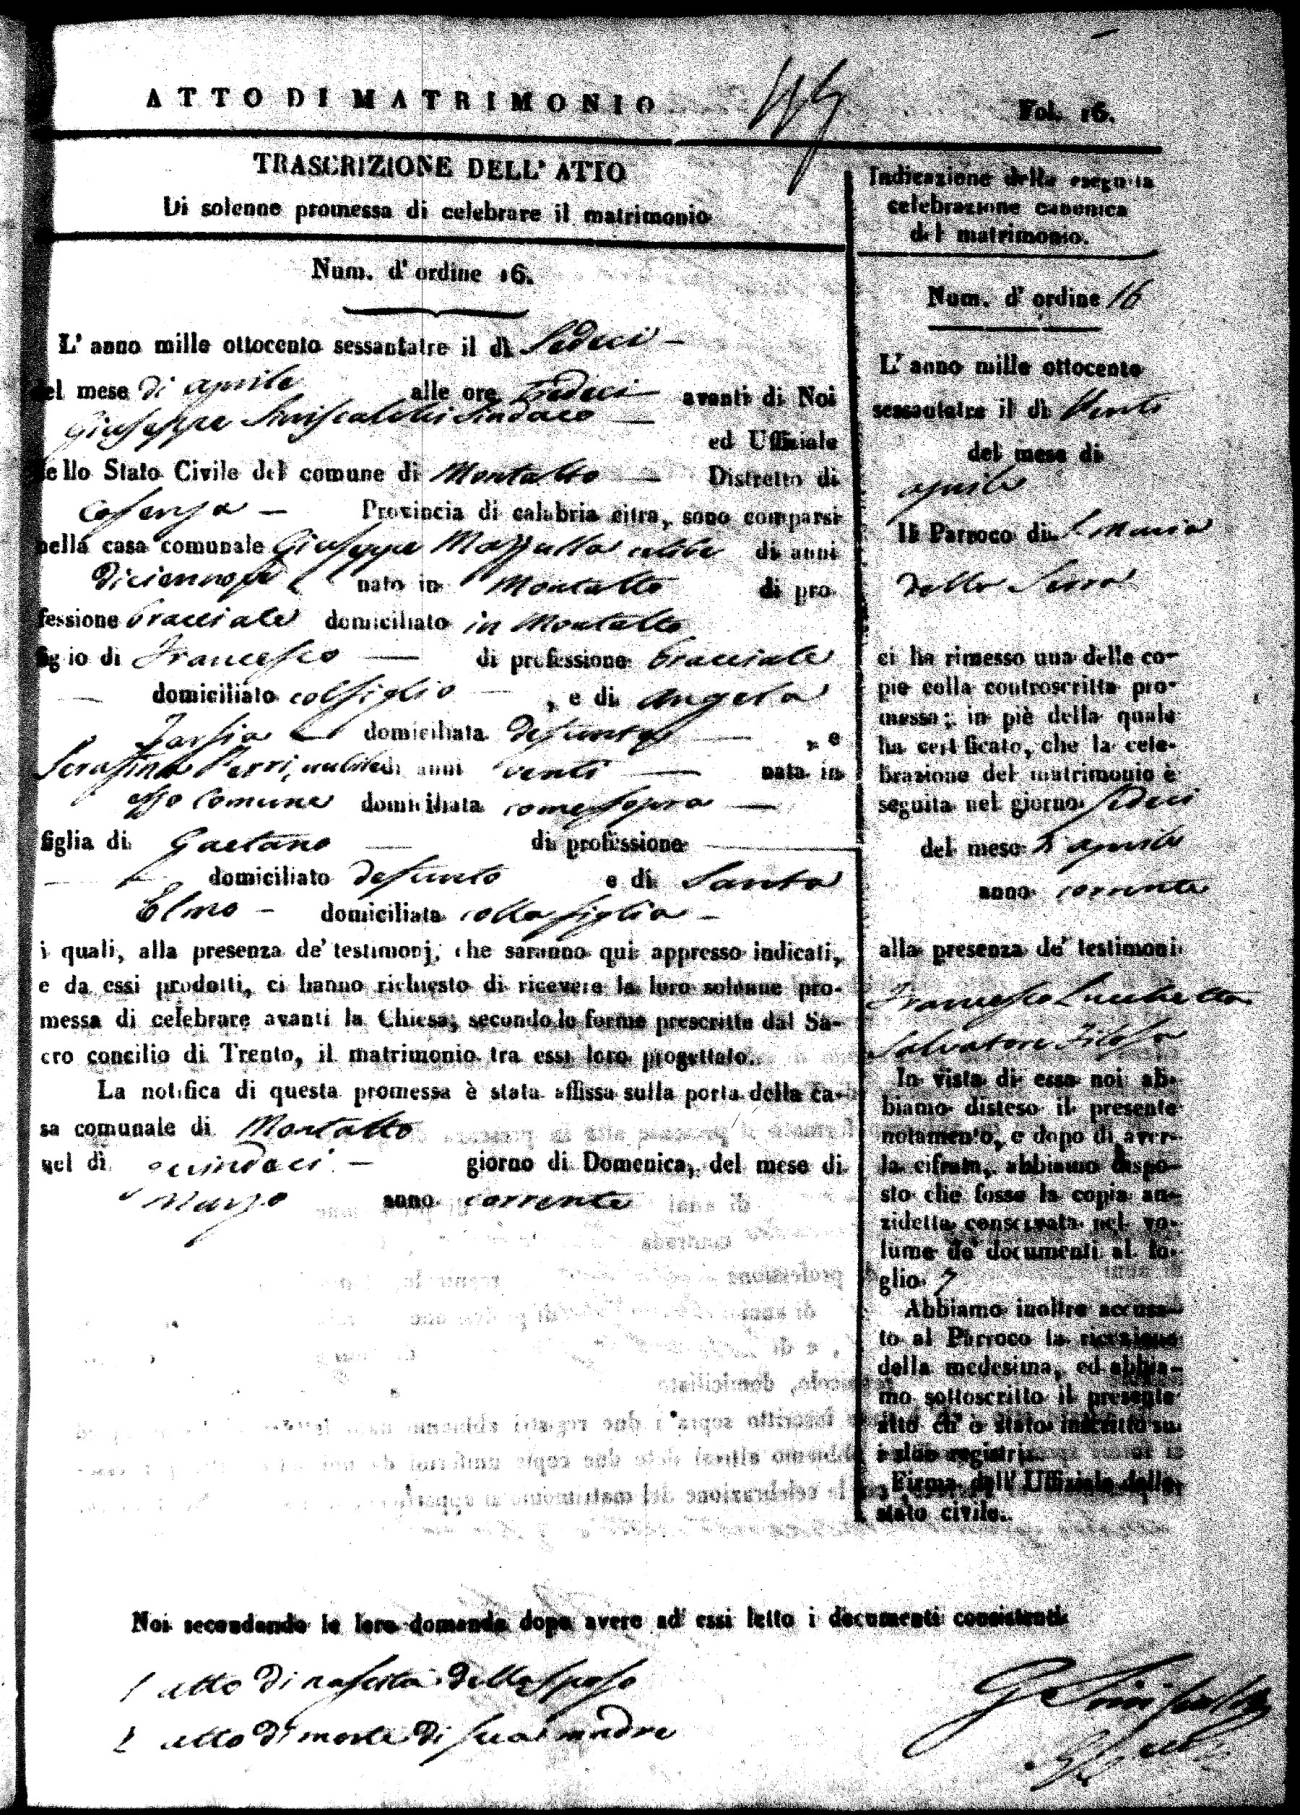 ATTO DI MATRIMONIO
Fol. 16.
TRASCRIZIONE DELL' ATTO
Di solenne promessa di celebrare il matrimonio
Num. d' ordine 16.
L' anno mille ottocento sessantatre il dì Sedeci
del mese di aprile alle ore tredeci avanti di Noi
Giuseppe Siniscalchi Sindaco
ed Uffiziale
dello Stato Civile del comune di Montalto Distretto di
Cosenza Provincia di calabria citra, sono comparsi
nella casa comunale Giuseppe Mazzulla celibe di anni
diciennove nato in Montalto di pro-
fessione bracciale domiciliato in Montalto
figlio di Francesco di professione bracciale
domiciliato col figlio , e di Angela
Tarsia domiciliata defunta , e
Serafina Perri, nubile di anni venti nata in
esso Comune domiciliata come sopra
figlia di Gaetano di professione
domiciliato defunto e di Santa
Elmo domiciliata colla figlia
i quali, alla presenza de' testimonj, che saranno qui appresso indicati,
e da essi prodotti, ci hanno richiesto di ricevere la loro solenne pro-
messa di celebrare avanti la Chiesa, secondo le forme prescritte dal Sa-
cro concilio di Trento, il matrimonio tra essi loro progettato.
La notifica di questa promessa è stata affissa sulla porta della ca-
sa comunale di Montalto
nel dì quindeci giorno di Domenica, del mese di
Marzo anno corrente
Indicazione della eseguita
celebrazione canonica
del matrimonio.
Num. d' ordine 16
L' anno mille ottocento
sessantatre il dì Venti
del mese di
aprile
Il Parroco di S. Maria
della Serra
ci ha rimesso una delle co-
pie colla controscritta pro-
messa; in piè della quale
ha certificato, che la cele-
brazione del matrimonio è
seguita nel giorno sedeci
del mese di aprile
anno corrente
alla presenza de' testimoni
Francesco Lucchetta
Salvatore Filosa
In vista di essa noi ab-
biamo disteso il presente
notamento, e dopo di aver-
la cifrata, abbiamo dispo-
sto che fosse la copia an-
zidetta conservata nel vo-
lume de' documenti al fo-
glio 7
Abbiamo inoltre accusa-
to al Parroco la ricezione
della medesima, ed abbia-
mo sottoscritto il presente
atto ch' è stato inscritto su
i due registri.
Firma dell' Uffiziale dello
stato civile.
Noi secondando le loro domande dopo avere ad' essi letto i documenti consistenti
1 atto di nascita dello sposo
2 atto di morte di sua madre